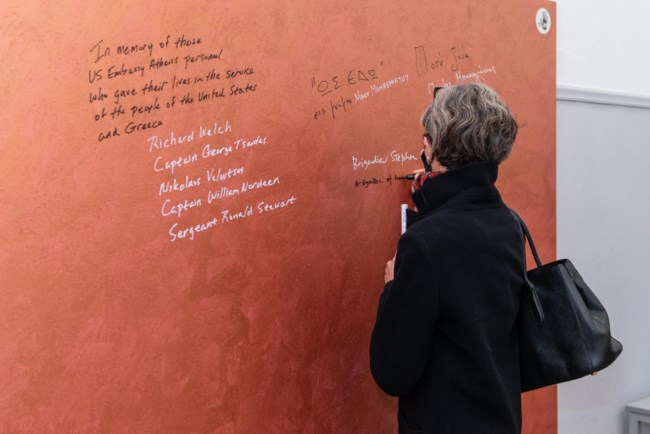 In memory of those
US Embassy Athens personal
who gave their lives in the service
of the people of the United States
and Greece
Richard Welch
Captain George Tsantes
Nikolaos Veloutsos
Captain William Nordeen
Sergeant Ronald Stewart
"ΩΣ ΕΔΩ"
Ποτέ ξανά
Brigadier Stephen
A symbol of